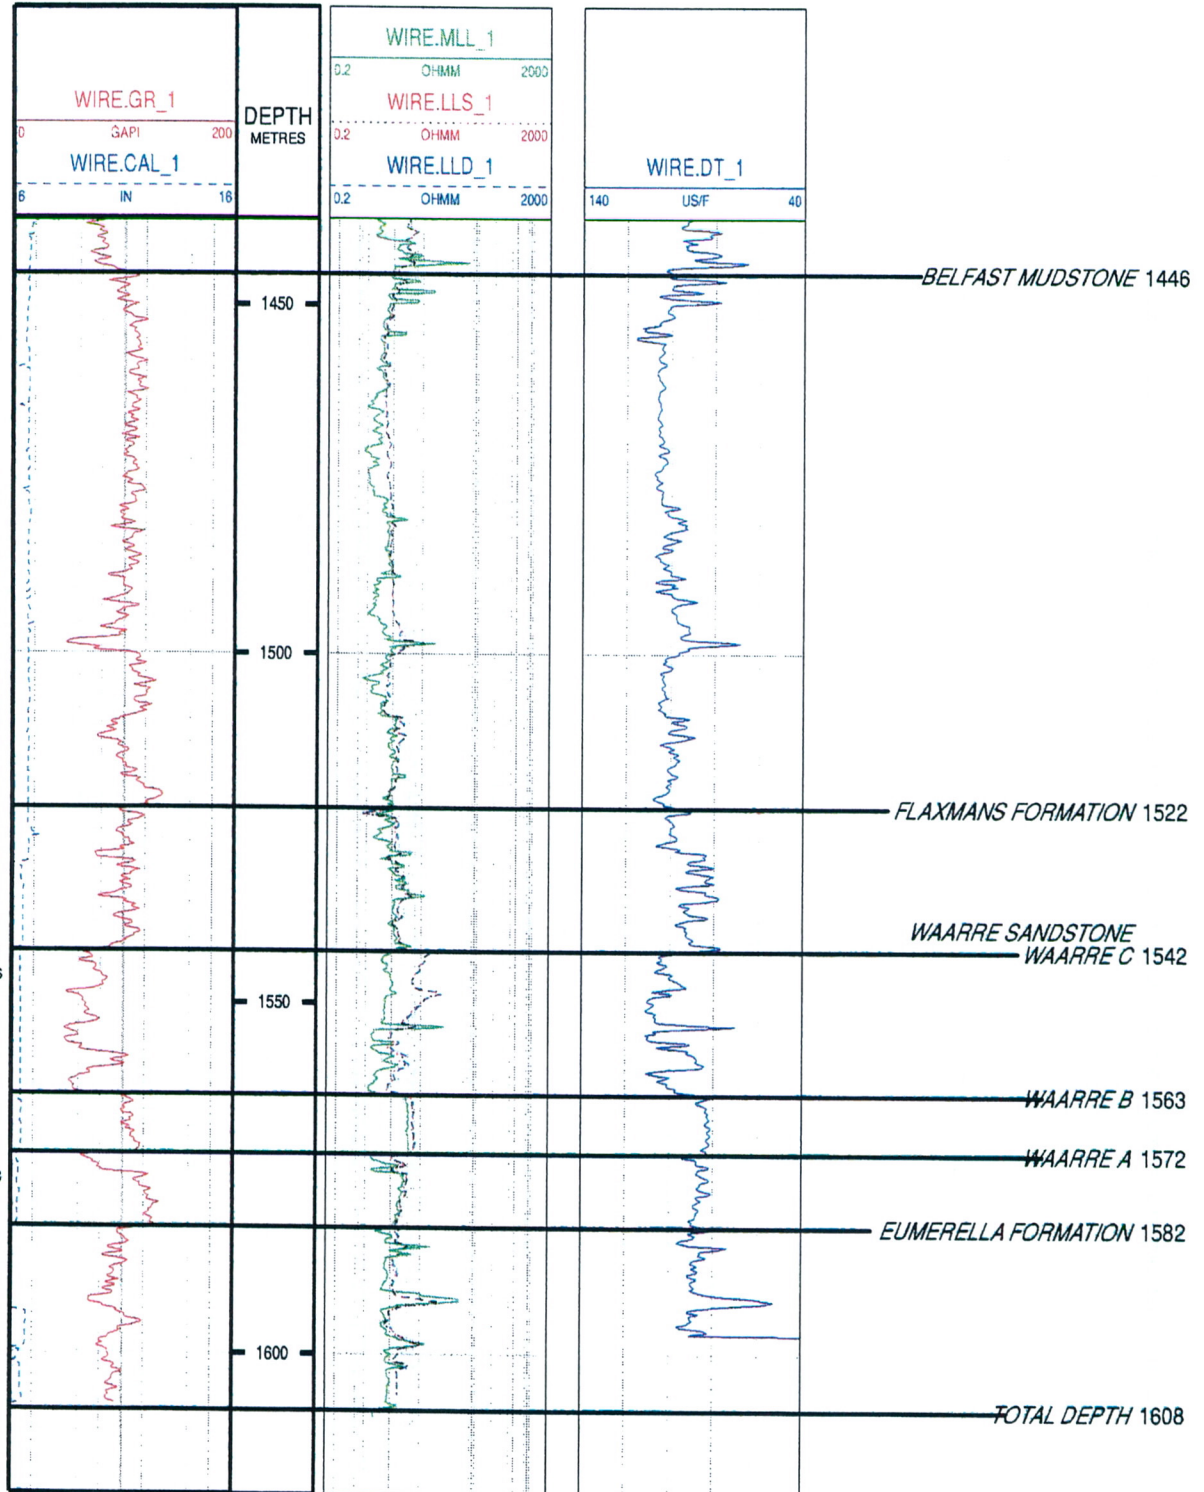 WIRE.GR_1
0 GAPI 200
WIRE.CAL_1
6 IN 16
DEPTH
METRES
WIRE.MLL_1
0.2 OHMM 2000
WIRE.LLS_1
0.2 OHMM 2000
WIRE.LLD_1
0.2 OHMM 2000
WIRE.DT_1
140 US/F 40
BELFAST MUDSTONE 1446
1450
1500
FLAXMANS FORMATION 1522
WAARRE SANDSTONE
WAARRE C 1542
s
1550
WAARRE B 1563
WAARRE A 1572
EUMERELLA FORMATION 1582
1600
TOTAL DEPTH 1608